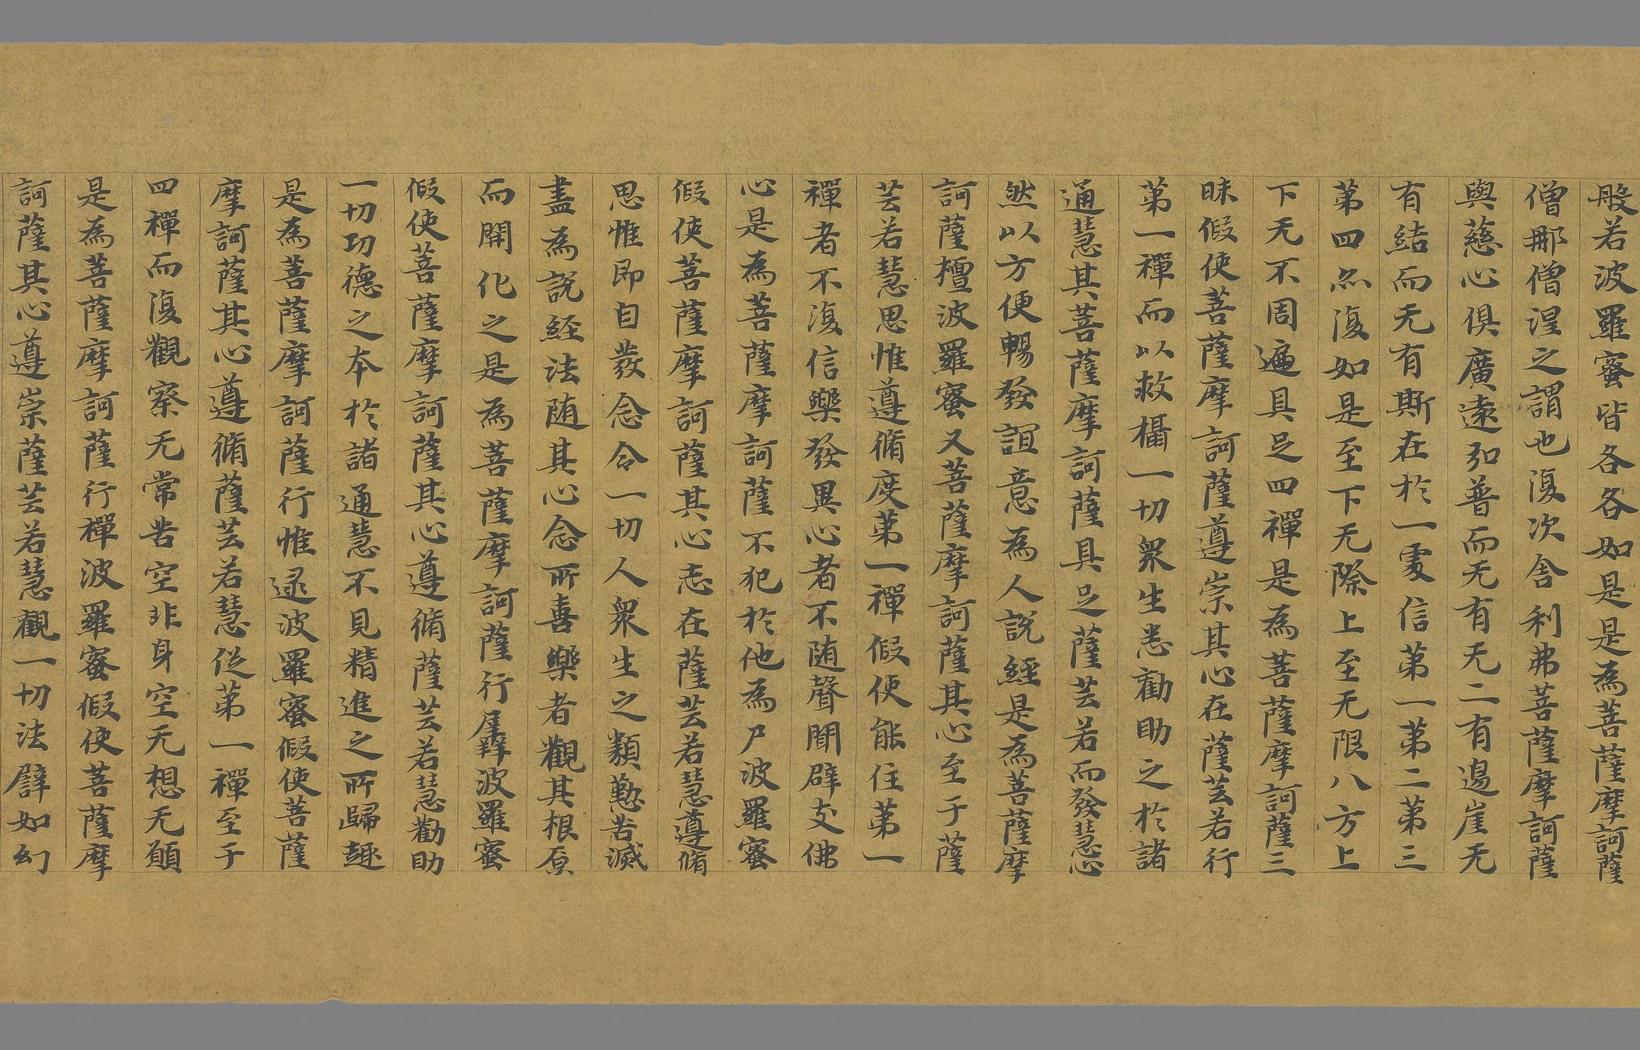 般若波羅蜜皆各各如是是為菩薩摩訶薩
僧那僧涅之謂也復次舍利弗菩薩摩訶薩
與慈心俱廣遠弘普而无有二有邊崖无
有結而无有斯在於一處信第一第二第三
第四亦復如是至下无際上至无限八方上
下无不周遍具足四禪是為菩薩摩訶薩三
昧假使菩薩摩訶薩遵崇其心在薩芸若行
第一禪而以救攝一切眾生悉勸助之於諸
通慧其菩薩摩訶薩具足薩芸若而發慧心
然以方便暢發誼意為人說經是為菩薩摩
訶薩檀波羅蜜又菩薩摩訶薩其心至于薩
芸若慧思惟遵脩度第一禪假使能住第一
禪者不復信樂發異心者不随聲聞辟支佛
心是為菩薩摩訶薩不犯於他為尸波羅蜜
假使菩薩摩訶薩其心志在薩芸若慧遵脩
思惟即自發念令一切人眾生之類懃苦滅
盡為說經法随其心念所喜樂者觀其根原
而開化之是為菩薩摩訶薩行羼羼波羅蜜
假使菩薩摩訶薩其心遵脩薩芸若慧勸助
一切功德之本於諸通慧不見精進之所歸趣
是為菩薩摩訶薩行惟逮波羅蜜假使菩薩
摩訶薩其心遵脩薩芸若慧從第一禪至于
四禪而復觀察无常苦空非身空无想无願
是為菩薩摩訶薩行禪波羅蜜假使菩薩摩
訶薩其心遵崇薩芸若慧觀一切法譬如幻